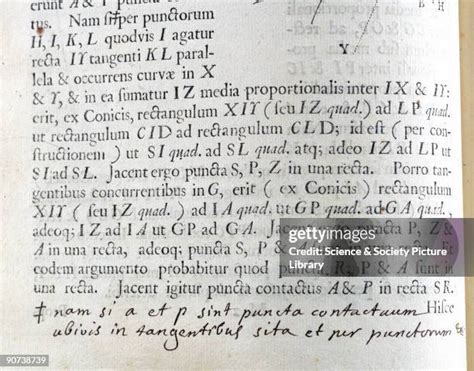 erunt A & P puncta
rus. Nam super punctorum
H, I, K, L quodvis I agatur
recta IY tangenti KL paral-
lela & occurrens curvæ in X
& Y, & in ea sumatur IZ media proportionalis inter IX & IY:
erit, ex Conicis, rectangulum XIY (seu IZ quad.) ad LP quad.
ut rectangulum CID ad rectangulum CLD; id est (per con-
structionem) ut SI quad. ad SL quad. atq; adeo IZ ad LP ut
SI ad SL. Jacent ergo puncta S, P, Z in una recta. Porro tan-
gentibus concurrentibus in G, erit (ex Conicis) rectangulum
XIY (seu IZ quad.) ad IA quad. ut GP quad. ad GA quad.
adeoq; IZ ad IA ut GP ad GA. Jacent puncta P, Z &
A in una recta, adeoq; puncta S, P & A
codem argumento probabitur quod R, P & A sunt in
una recta. Jacent igitur puncta contactus A & P in recta SR.
Hisce
nam si a et p sint puncta contactuum
ubivis in tangentibus sita et per punctorum
B H
Y
gettyimages
Science & Society Picture
Library
90738739